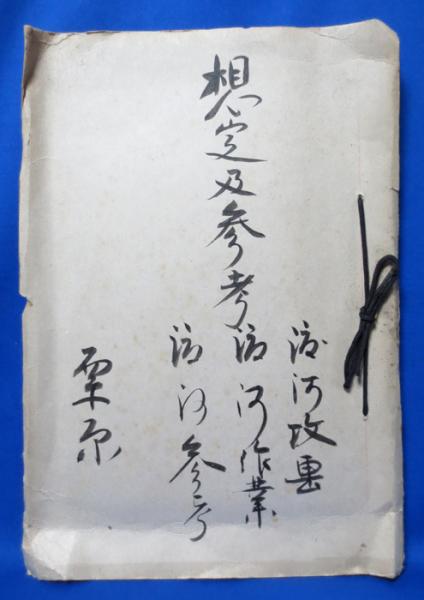 想定及参考
渡河攻撃
渡河作業
渡河参考
栗原